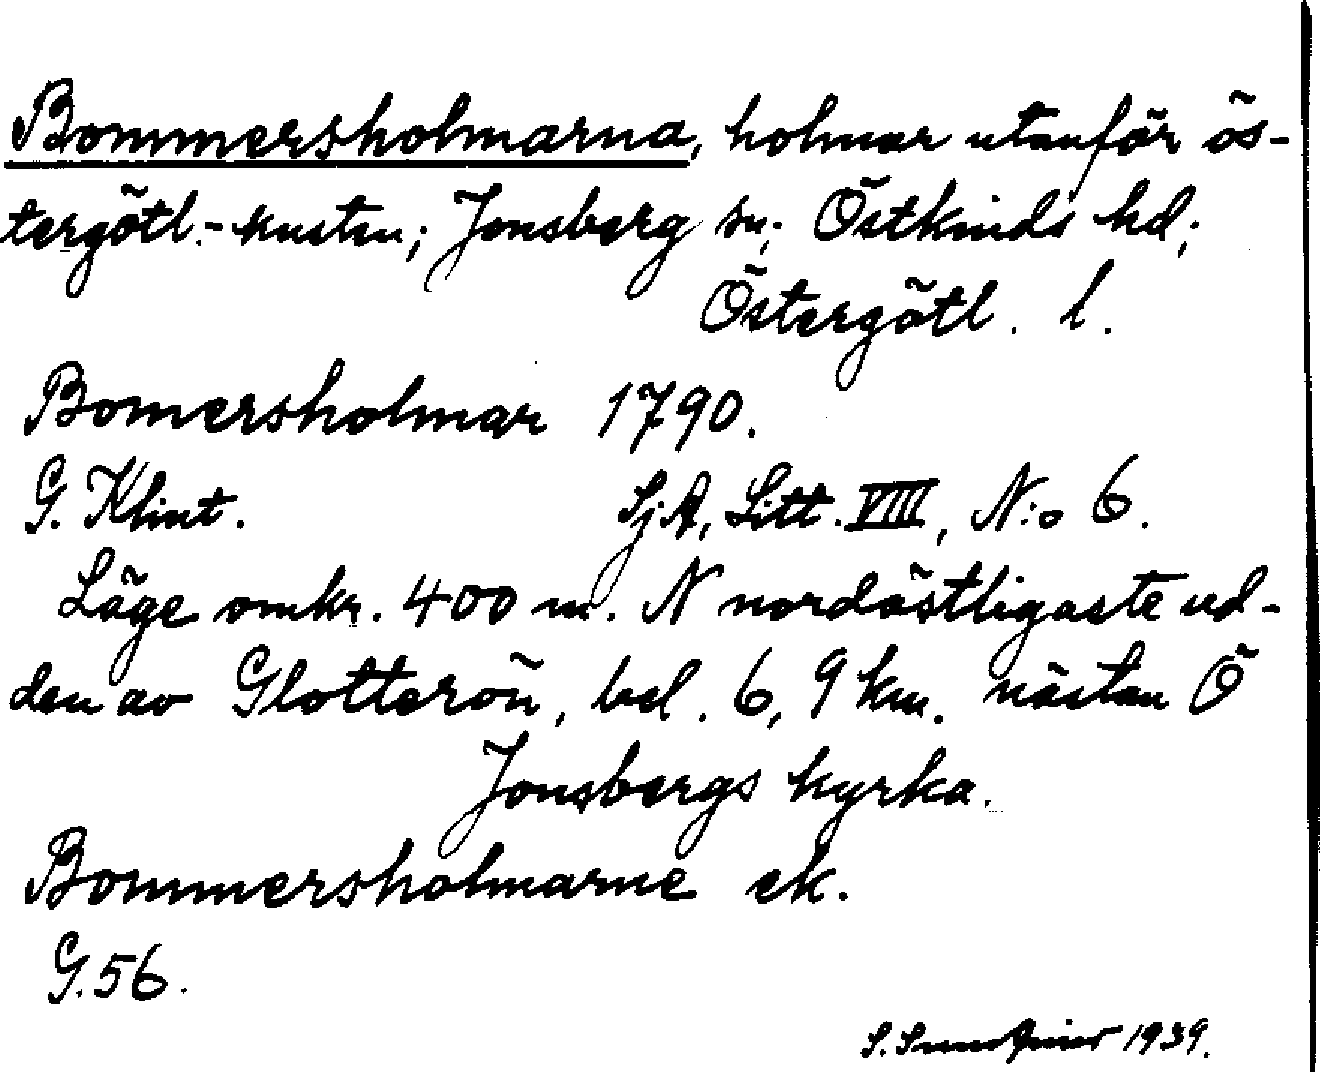 Bommersholmarna, holmar utanför ös-
tergötl.-kusten; Jonsberg sn; Östkinds hd;
Östergötl. l.
Bomersholmar 1790.
G. Klint. SjA, Litt. VIII, N:o 6.
Läge omkr. 400 m. N nordöstligaste ud-
den av Glotterön, bel. 6,9 km. nästan Ö
Jonsbergs kyrka.
Bommersholmarne ek.
G.56.
S. 1939.